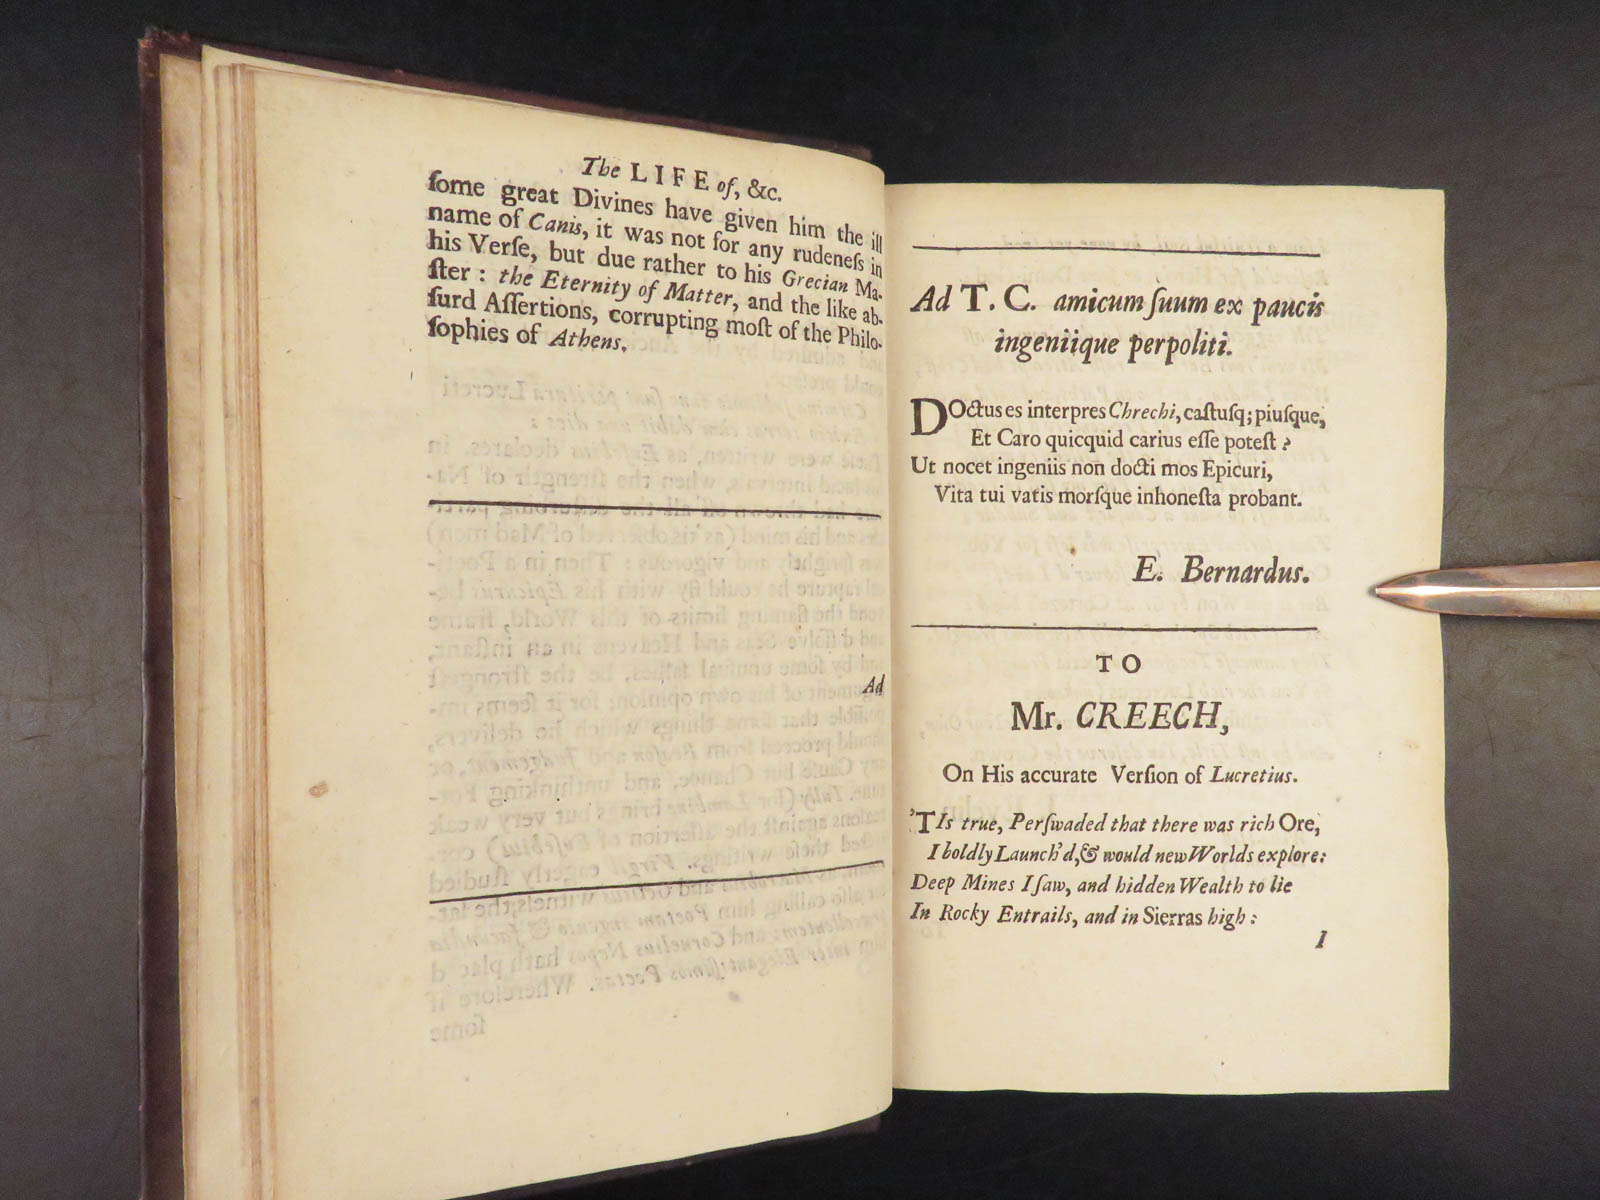 The LIFE of, &c.
ſome great Divines have given him the ill
name of Canis, it was not for any rudeneſs in
his Verſe, but due rather to his Grecian Ma-
ſter : the Eternity of Matter, and the like ab-
ſurd Aſſertions, corrupting moſt of the Philo-
ſophies of Athens.
Ad
Ad T. C. amicum ſuum ex paucis
ingeniique perpoliti.
DOctus es interpres Chrechi, caſtuſq; piuſque,
Et Caro quicquid carius eſſe poteſt ?
Ut nocet ingeniis non docti mos Epicuri,
Vita tui vatis morſque inhoneſta probant.
E. Bernardus.
TO
Mr. CREECH,
On His accurate Verſion of Lucretius.
'TIs true, Perſwaded that there was rich Ore,
I boldly Launch'd, & would new Worlds explore:
Deep Mines I ſaw, and hidden Wealth to lie
In Rocky Entrails, and in Sierras high :
I